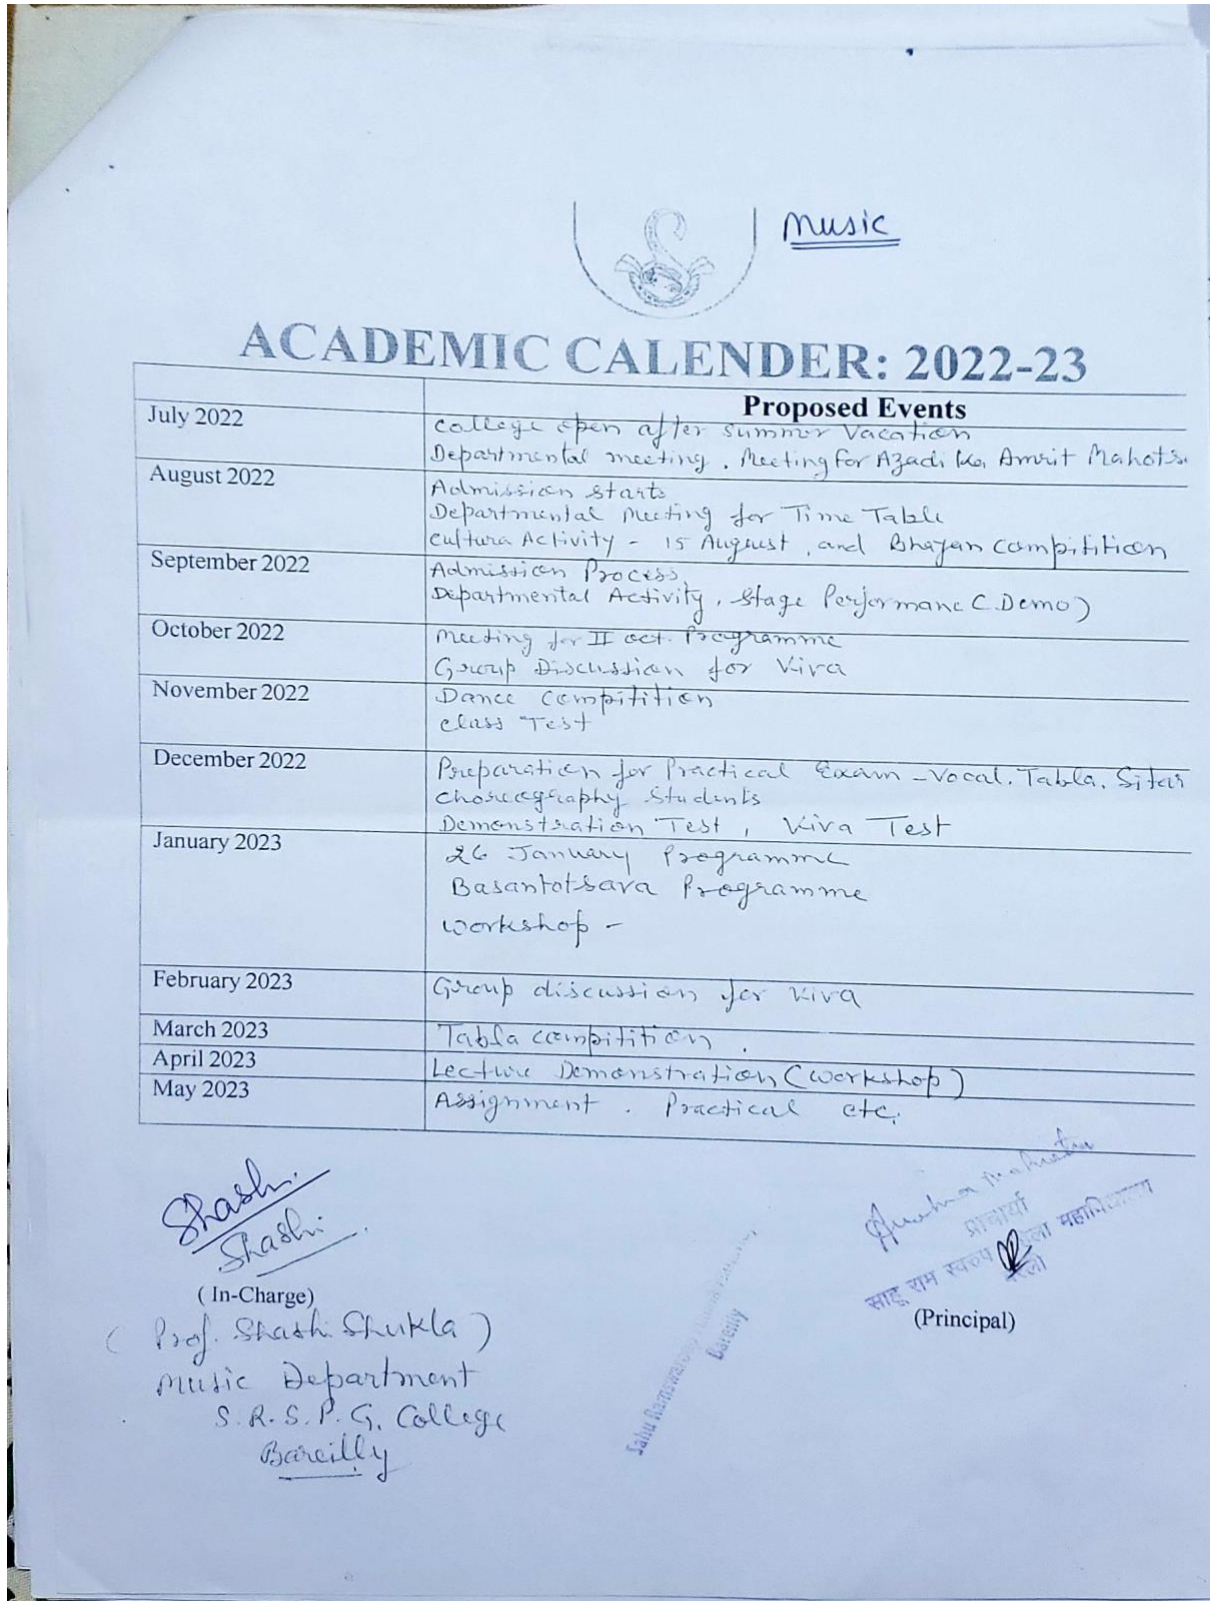 Music
ACADEMIC CALENDER: 2022-23
Proposed Events
July 2022
College open after summer Vacation
Departmental meeting. Meeting for Azadi Ka Amrit Mahots.
August 2022
Admission starts
Departmental Meeting for Time Table
Cultura Activity - 15 August, and Bhajan compitition
September 2022
Admission Process,
Departmental Activity, Stage Performanc (.Demo)
October 2022
Meeting for II oct. Programme
Group Discussion for Viva
November 2022
Dance compitition
class Test
December 2022
Preparation for Practical Exam - Vocal. Tabla. Sitar
Choreography Students
Demonstration Test, Viva Test
January 2023
26 January Programme
Basantotsava Programme
workshop -
February 2023
Group discussion for Viva
March 2023
Tabla compitition.
April 2023
Lecture Demonstration (workshop)
May 2023
Assignment. Practical etc.
Shashi.
Shashi
(In-Charge)
(Prof. Shashi Shukla)
Music Department
S.R.S.P.G. College
Bareilly
Sahu Ramswaroop
Bareilly
प्राचार्या
साहू राम स्वरुप महाविद्यालय
(Principal)